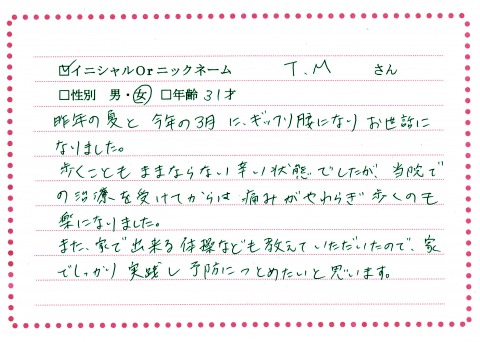 ☑イニシャルOrニックネーム T.M さん
□性別 男・女 □年齢 31才
昨年の夏と 今年の3月 に、ギックリ腰になり お世話に
なりました。
歩くことも ままならない 辛い状態でしたが、当院で
の治療を受けてからは 痛みがやわらぎ 歩くのも
楽になりました。
また、家で出来る体操なども教えていただいたので、家
でしっかり 実践し 予防につとめたいと思います。